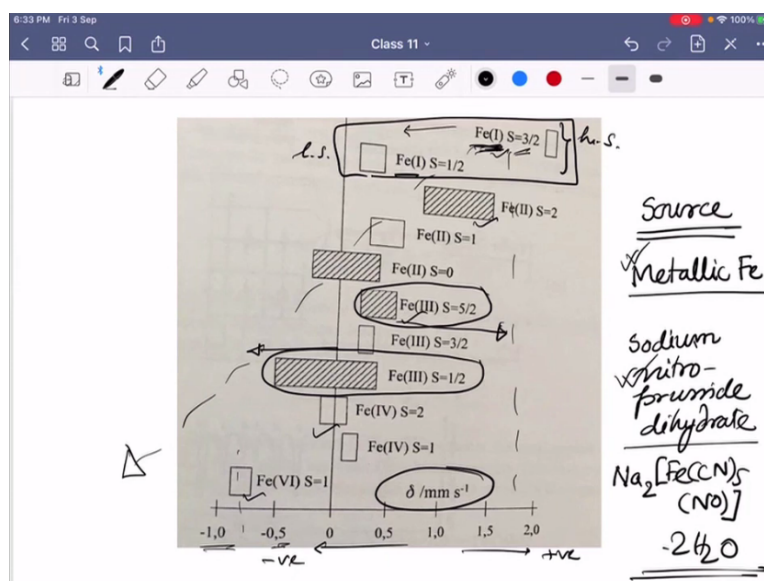 6:33 PM Fri 3 Sep
100%
Class 11
Fe(I) S=3/2
h.s.
l.s.
Fe(I) S=1/2
Fe(II) S=2
Fe(II) S=1
Fe(II) S=0
Fe(III) S=5/2
Fe(III) S=3/2
Fe(III) S=1/2
Fe(IV) S=2
Fe(IV) S=1
Fe(VI) S=1
δ /mm s⁻¹
-1,0 -0,5 0 0,5 1,0 1,5 2,0
-ve +ve
Source
Metallic Fe
Sodium
nitro-
prusside
dihydrate
Na2[Fe(CN)5
(NO)]
.2H2O